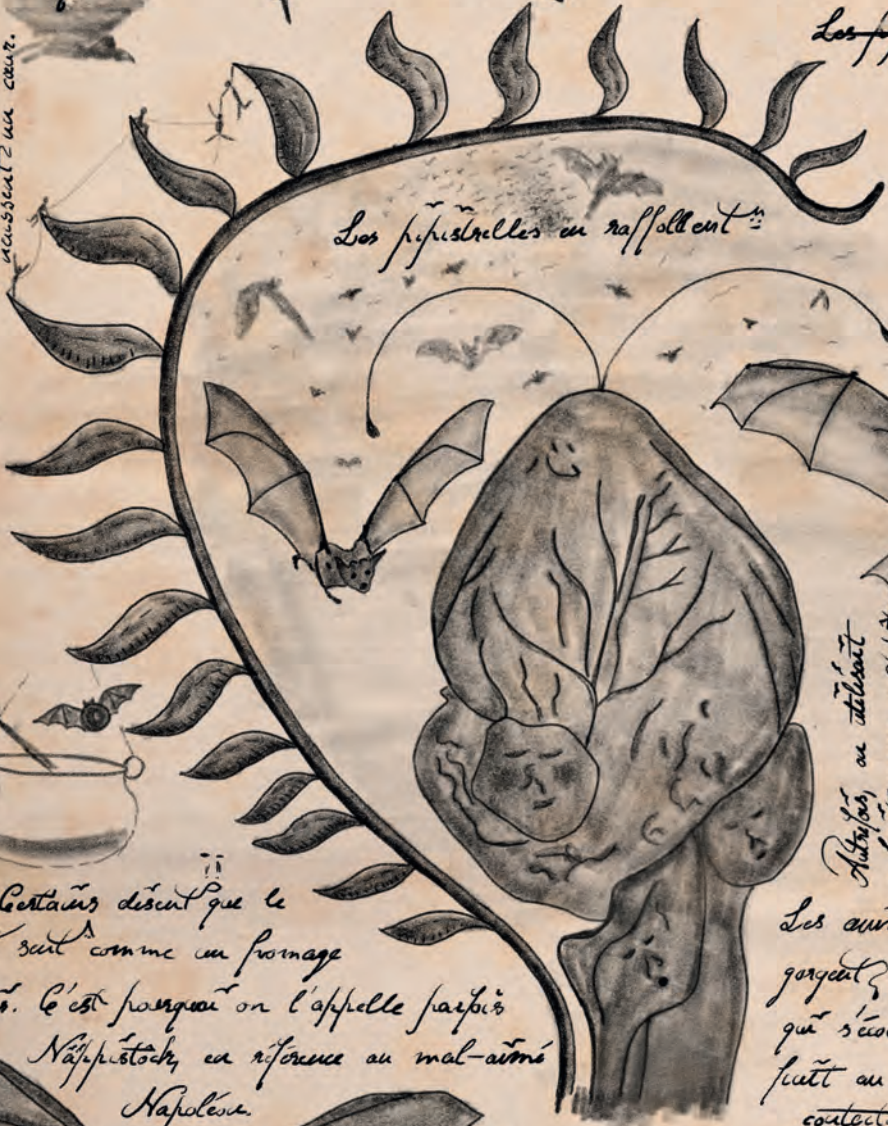 naissent un cœur.
Les
Les pipistrelles en raffollent
Autrefois, on utilisait
Certains disent que le
sent comme un fromage
C'est pourquoi on l'appelle parfois
Näppistöck, en référence au mal-aimé
Napoléon.
Les
gorgent
qui
fuit au
contact